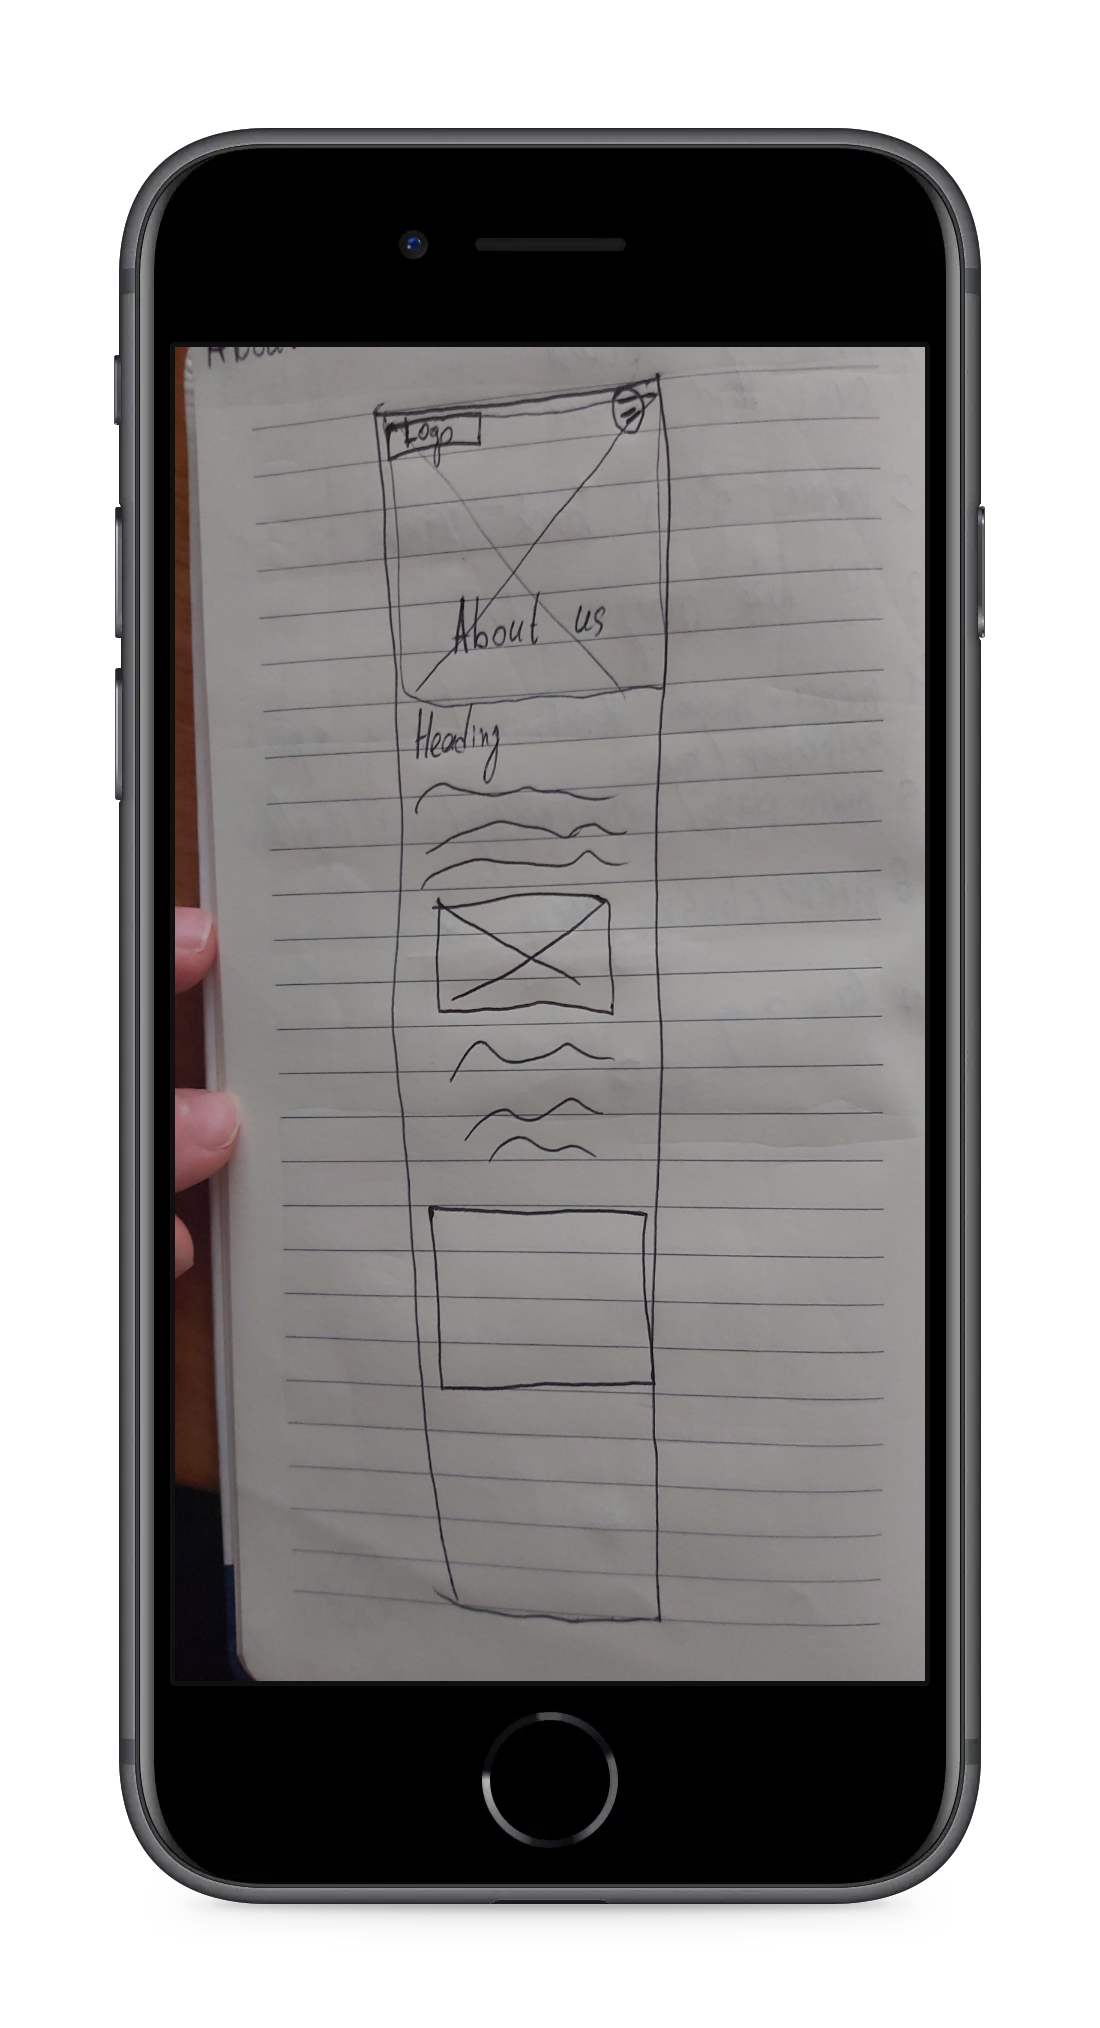 Logo
About us
Heading